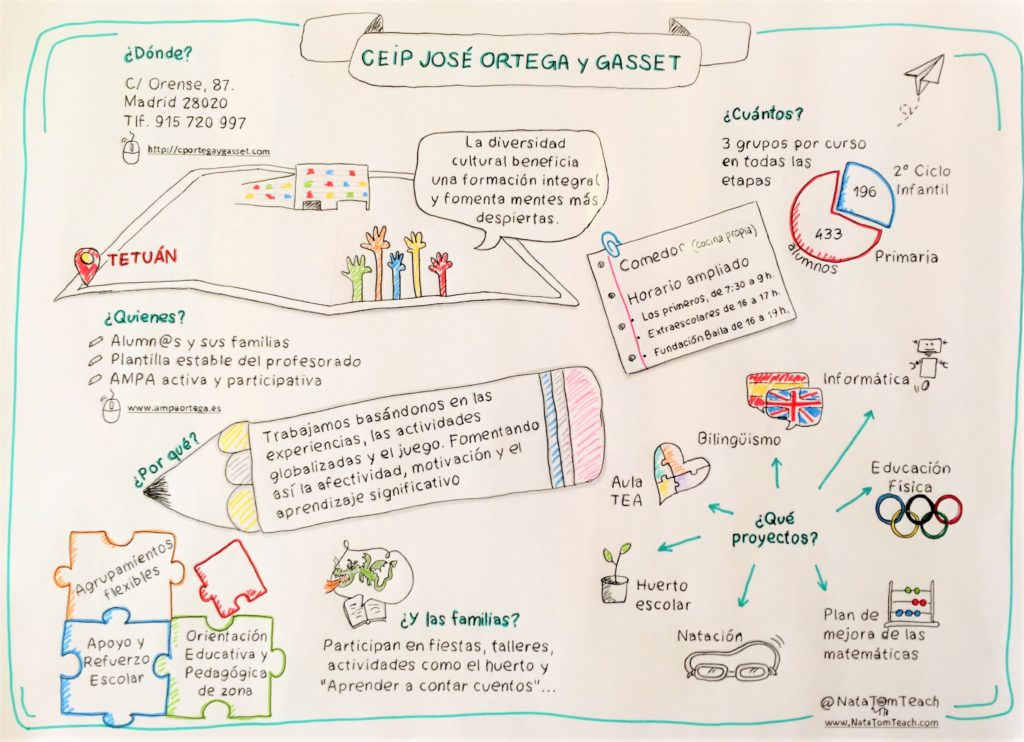 CEIP JOSÉ ORTEGA y GASSET
¿Dónde?
C/ Orense, 87.
Madrid 28020
Tlf. 915 720 997
http://cportegaygasset.com
La diversidad
cultural beneficia
una formación integral
y fomenta mentes más
despiertas.
TETUÁN
¿Cuántos?
3 grupos por curso
en todas las
etapas
196
2º Ciclo
Infantil
433
alumnos
Primaria
Comedor (cocina propia)
Horario ampliado
Los primeros, de 7:30 a 9 h.
Extraescolares de 16 a 17 h.
Fundación Baila de 16 a 19 h.
¿Quienes?
Alumn@s y sus familias
Plantilla estable del profesorado
AMPA activa y participativa
www.ampaortega.es
¿Por qué?
Trabajamos basándonos en las
experiencias, las actividades
globalizadas y el juego. Fomentando
así la afectividad, motivación y el
aprendizaje significativo
Agrupamientos
flexibles
Apoyo y
Refuerzo
Escolar
Orientación
Educativa y
Pedagógica
de zona
¿Y las familias?
Participan en fiestas, talleres,
actividades como el huerto y
"Aprender a contar cuentos"...
¿Qué
proyectos?
Informática
Bilingüismo
Aula
TEA
Educación
Física
Huerto
escolar
Natación
Plan de
mejora de las
matemáticas
@NataTomTeach
www.NataTomTeach.com